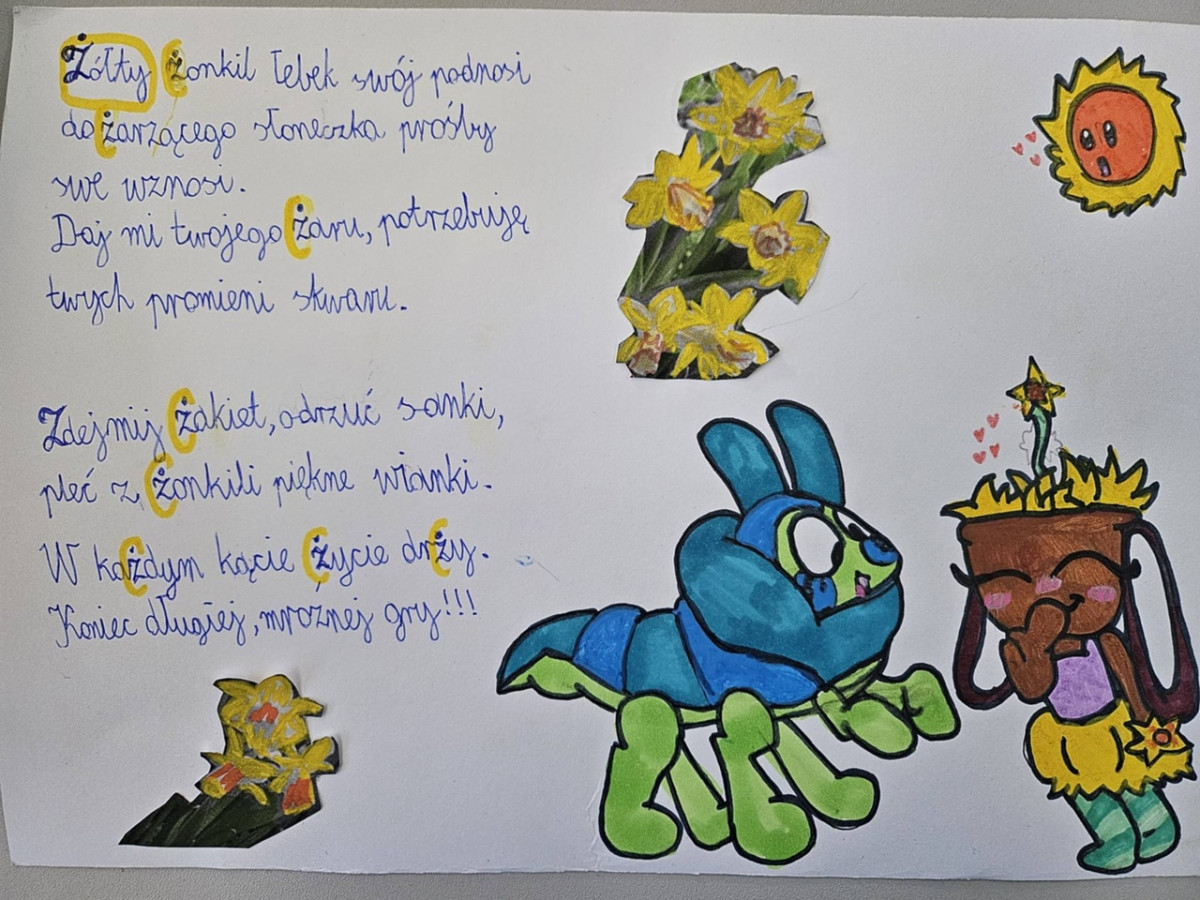 Żółty żonkil łebek swój podnosi
do żarzącego słoneczka prośby
swe wznosi.
Daj mi twojego żaru, potrzebuję
twych promieni skwaru.
Zdejmij żakiet, odrzuć sanki,
pleć z żonkili piękne wianki.
W każdym kącie życie drży.
Koniec długiej, mroźnej gry!!!